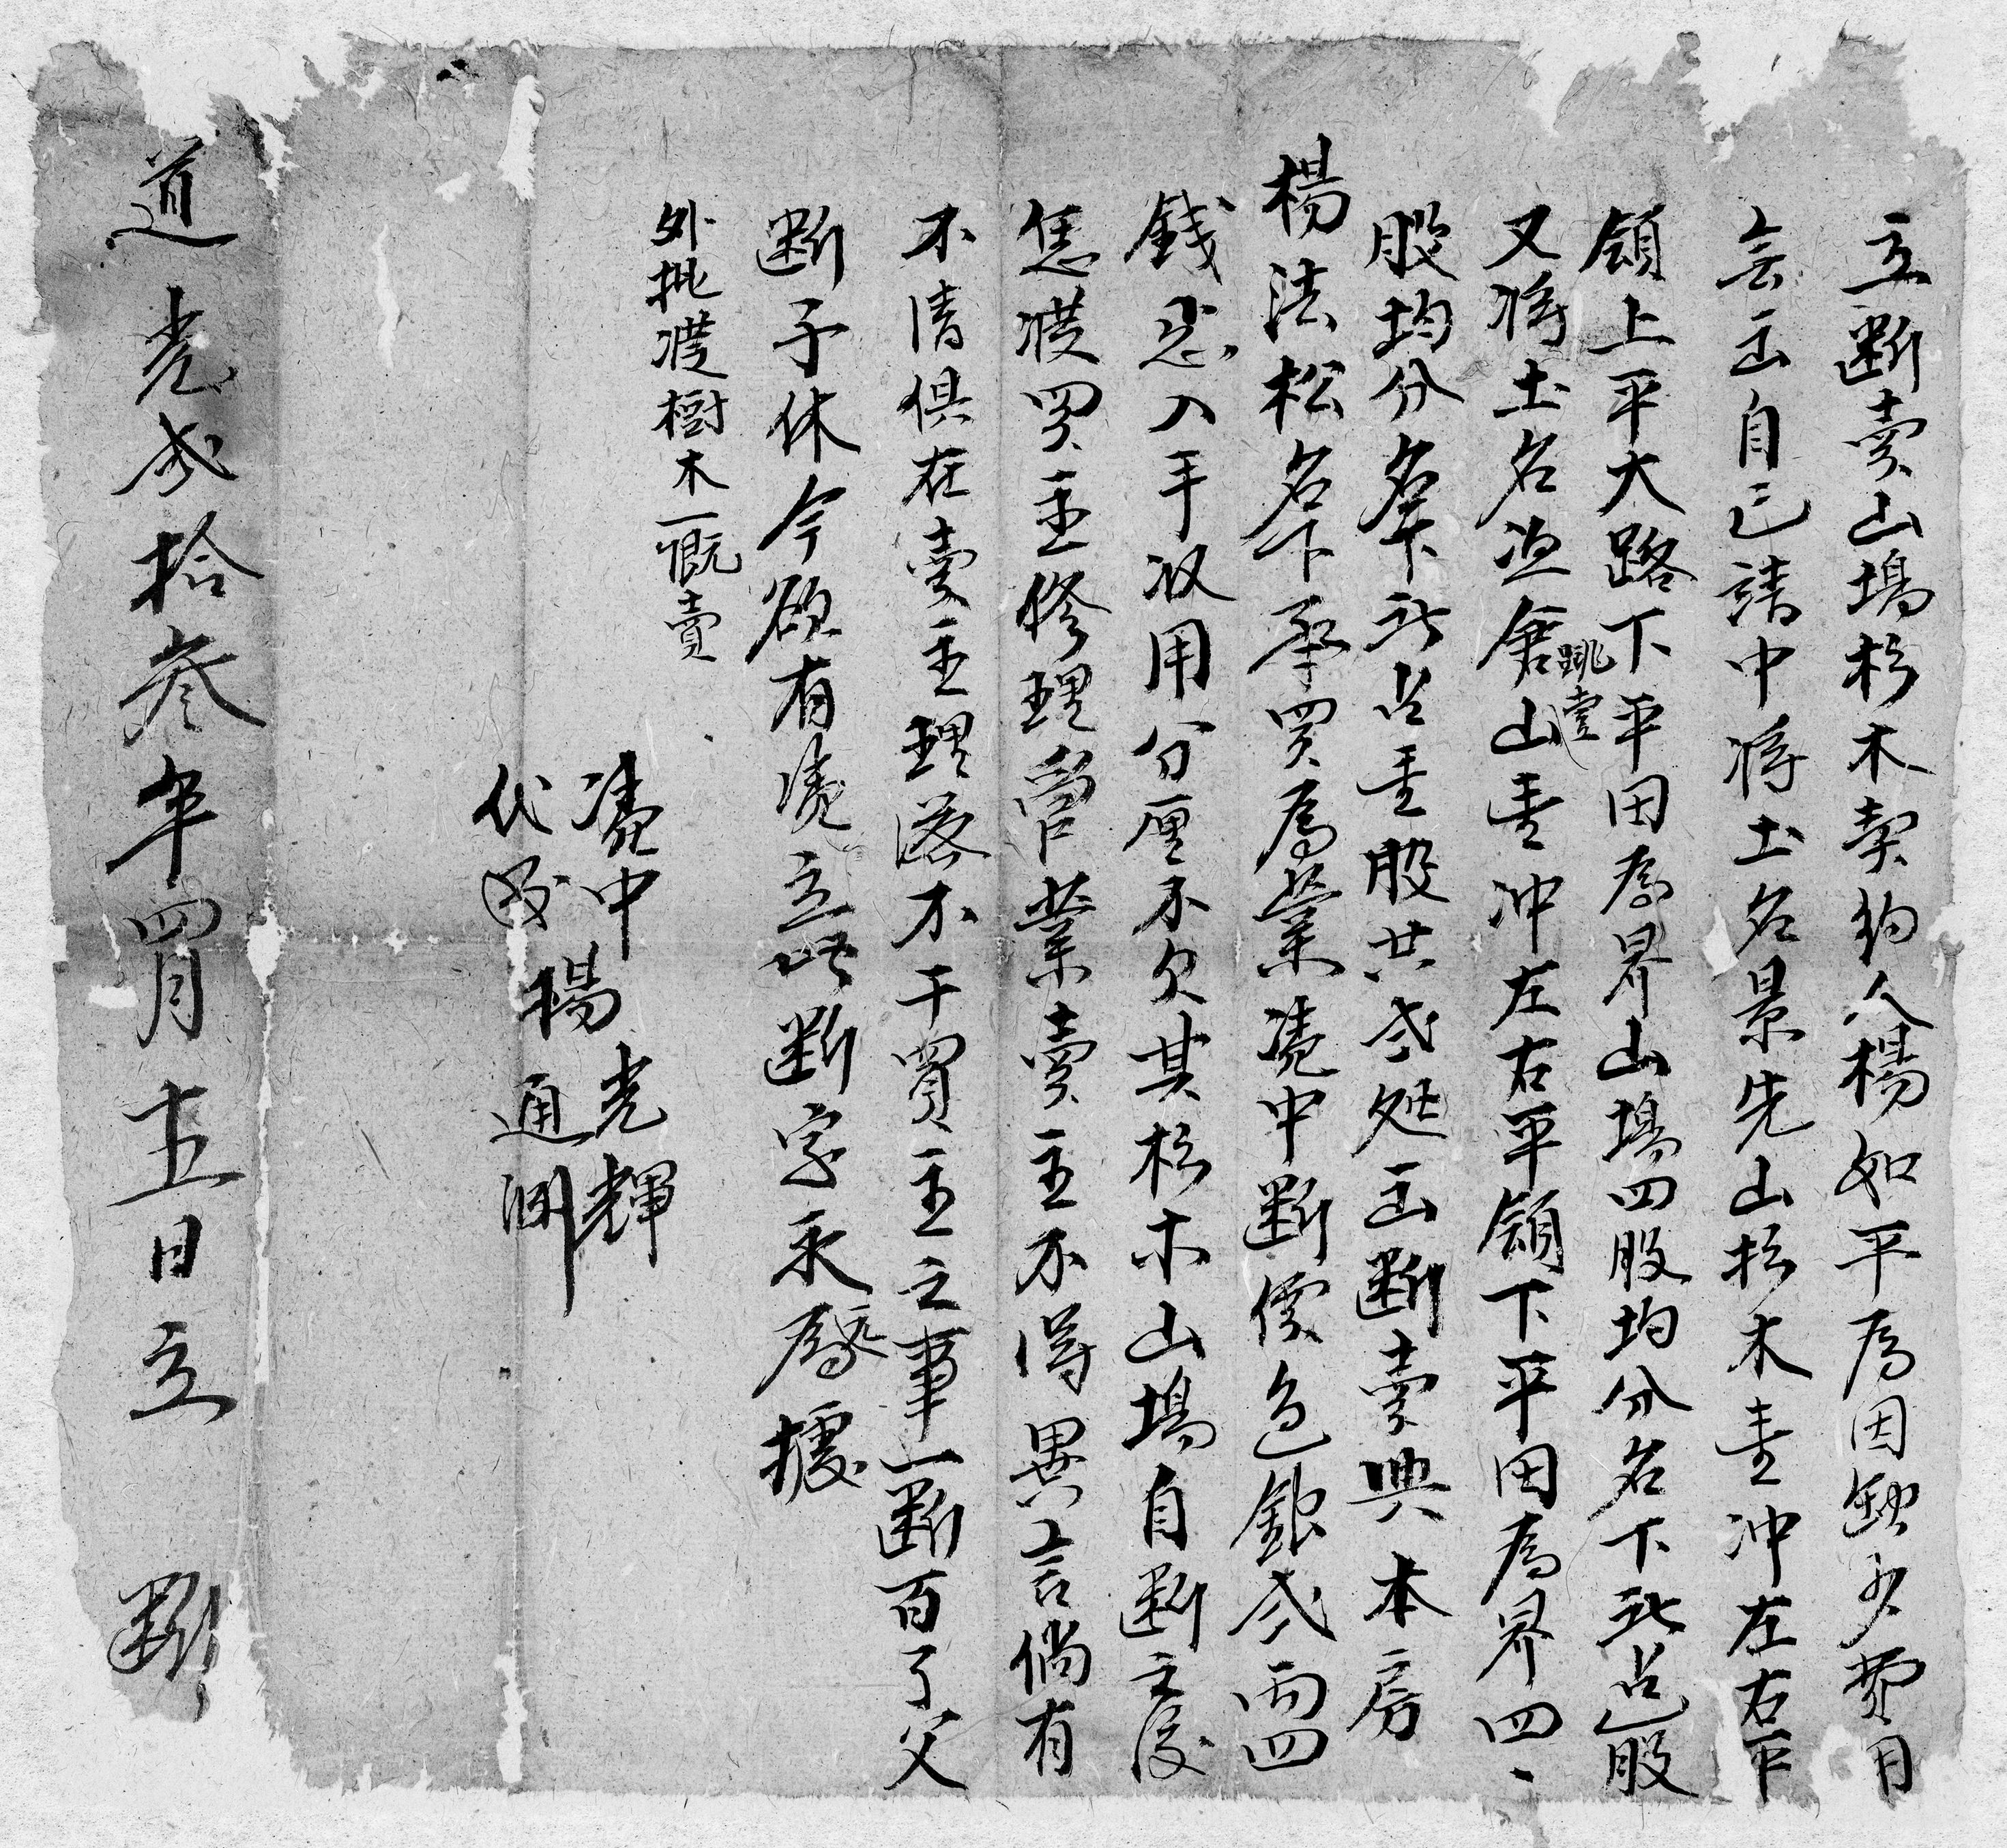 立斷賣山塲杉木契約人楊如平為因缺少費用
無出自己請中將土名景先山杉木壹冲左右平
領上平大路下平田為界山塲四股均分名下酐占壹股
又將土名岜唐山壹冲左右平領下平田為界四
跳壹
股均分名下所占壹股共弍處出斷賣與本房
楊法松名下承買為業憑中斷價色銀弍両四
錢忿入手收用分厘不欠其杉木山塲自斷之後
恁從買主修理管業賣主不得異言倘有
不清俱在賣主理落不干買主之事一斷百了父
斷子休今欲有憑立此斷字永遠為據
外批從樹木一概賣
憑中楊光輝
代筆楊通洲
道光弍拾叁年四月十五日立 斷